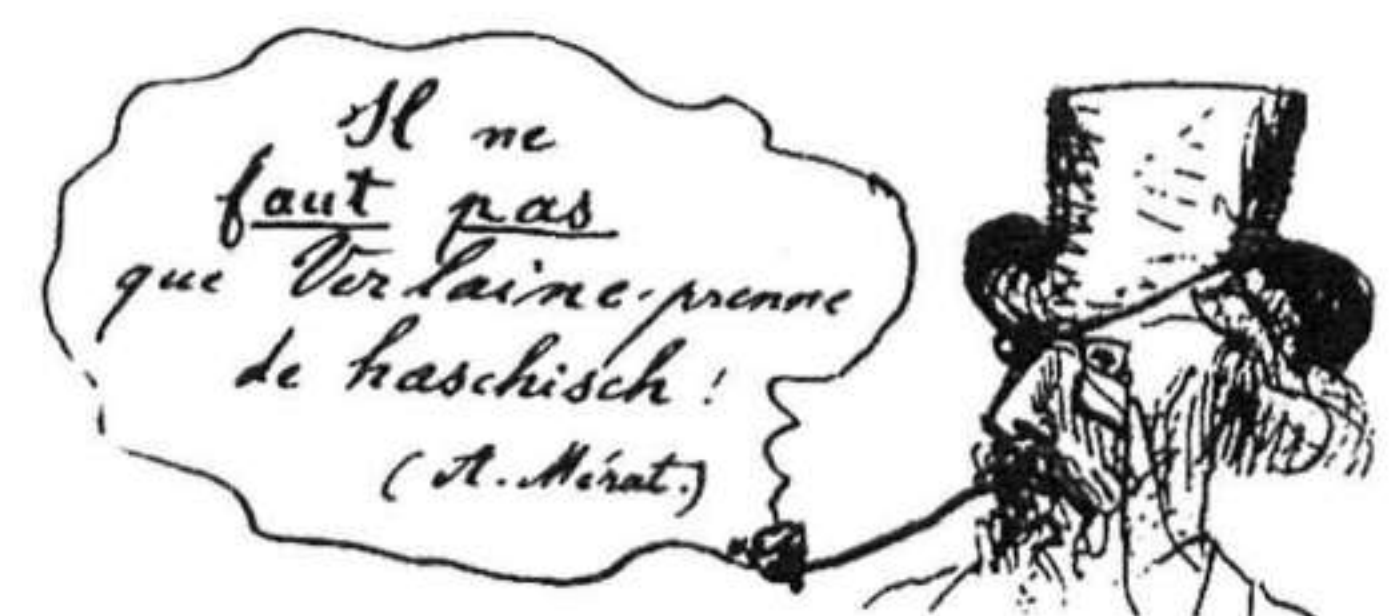 Il ne
faut pas
que Verlaine prenne
de haschisch !
(A. Mérat.)